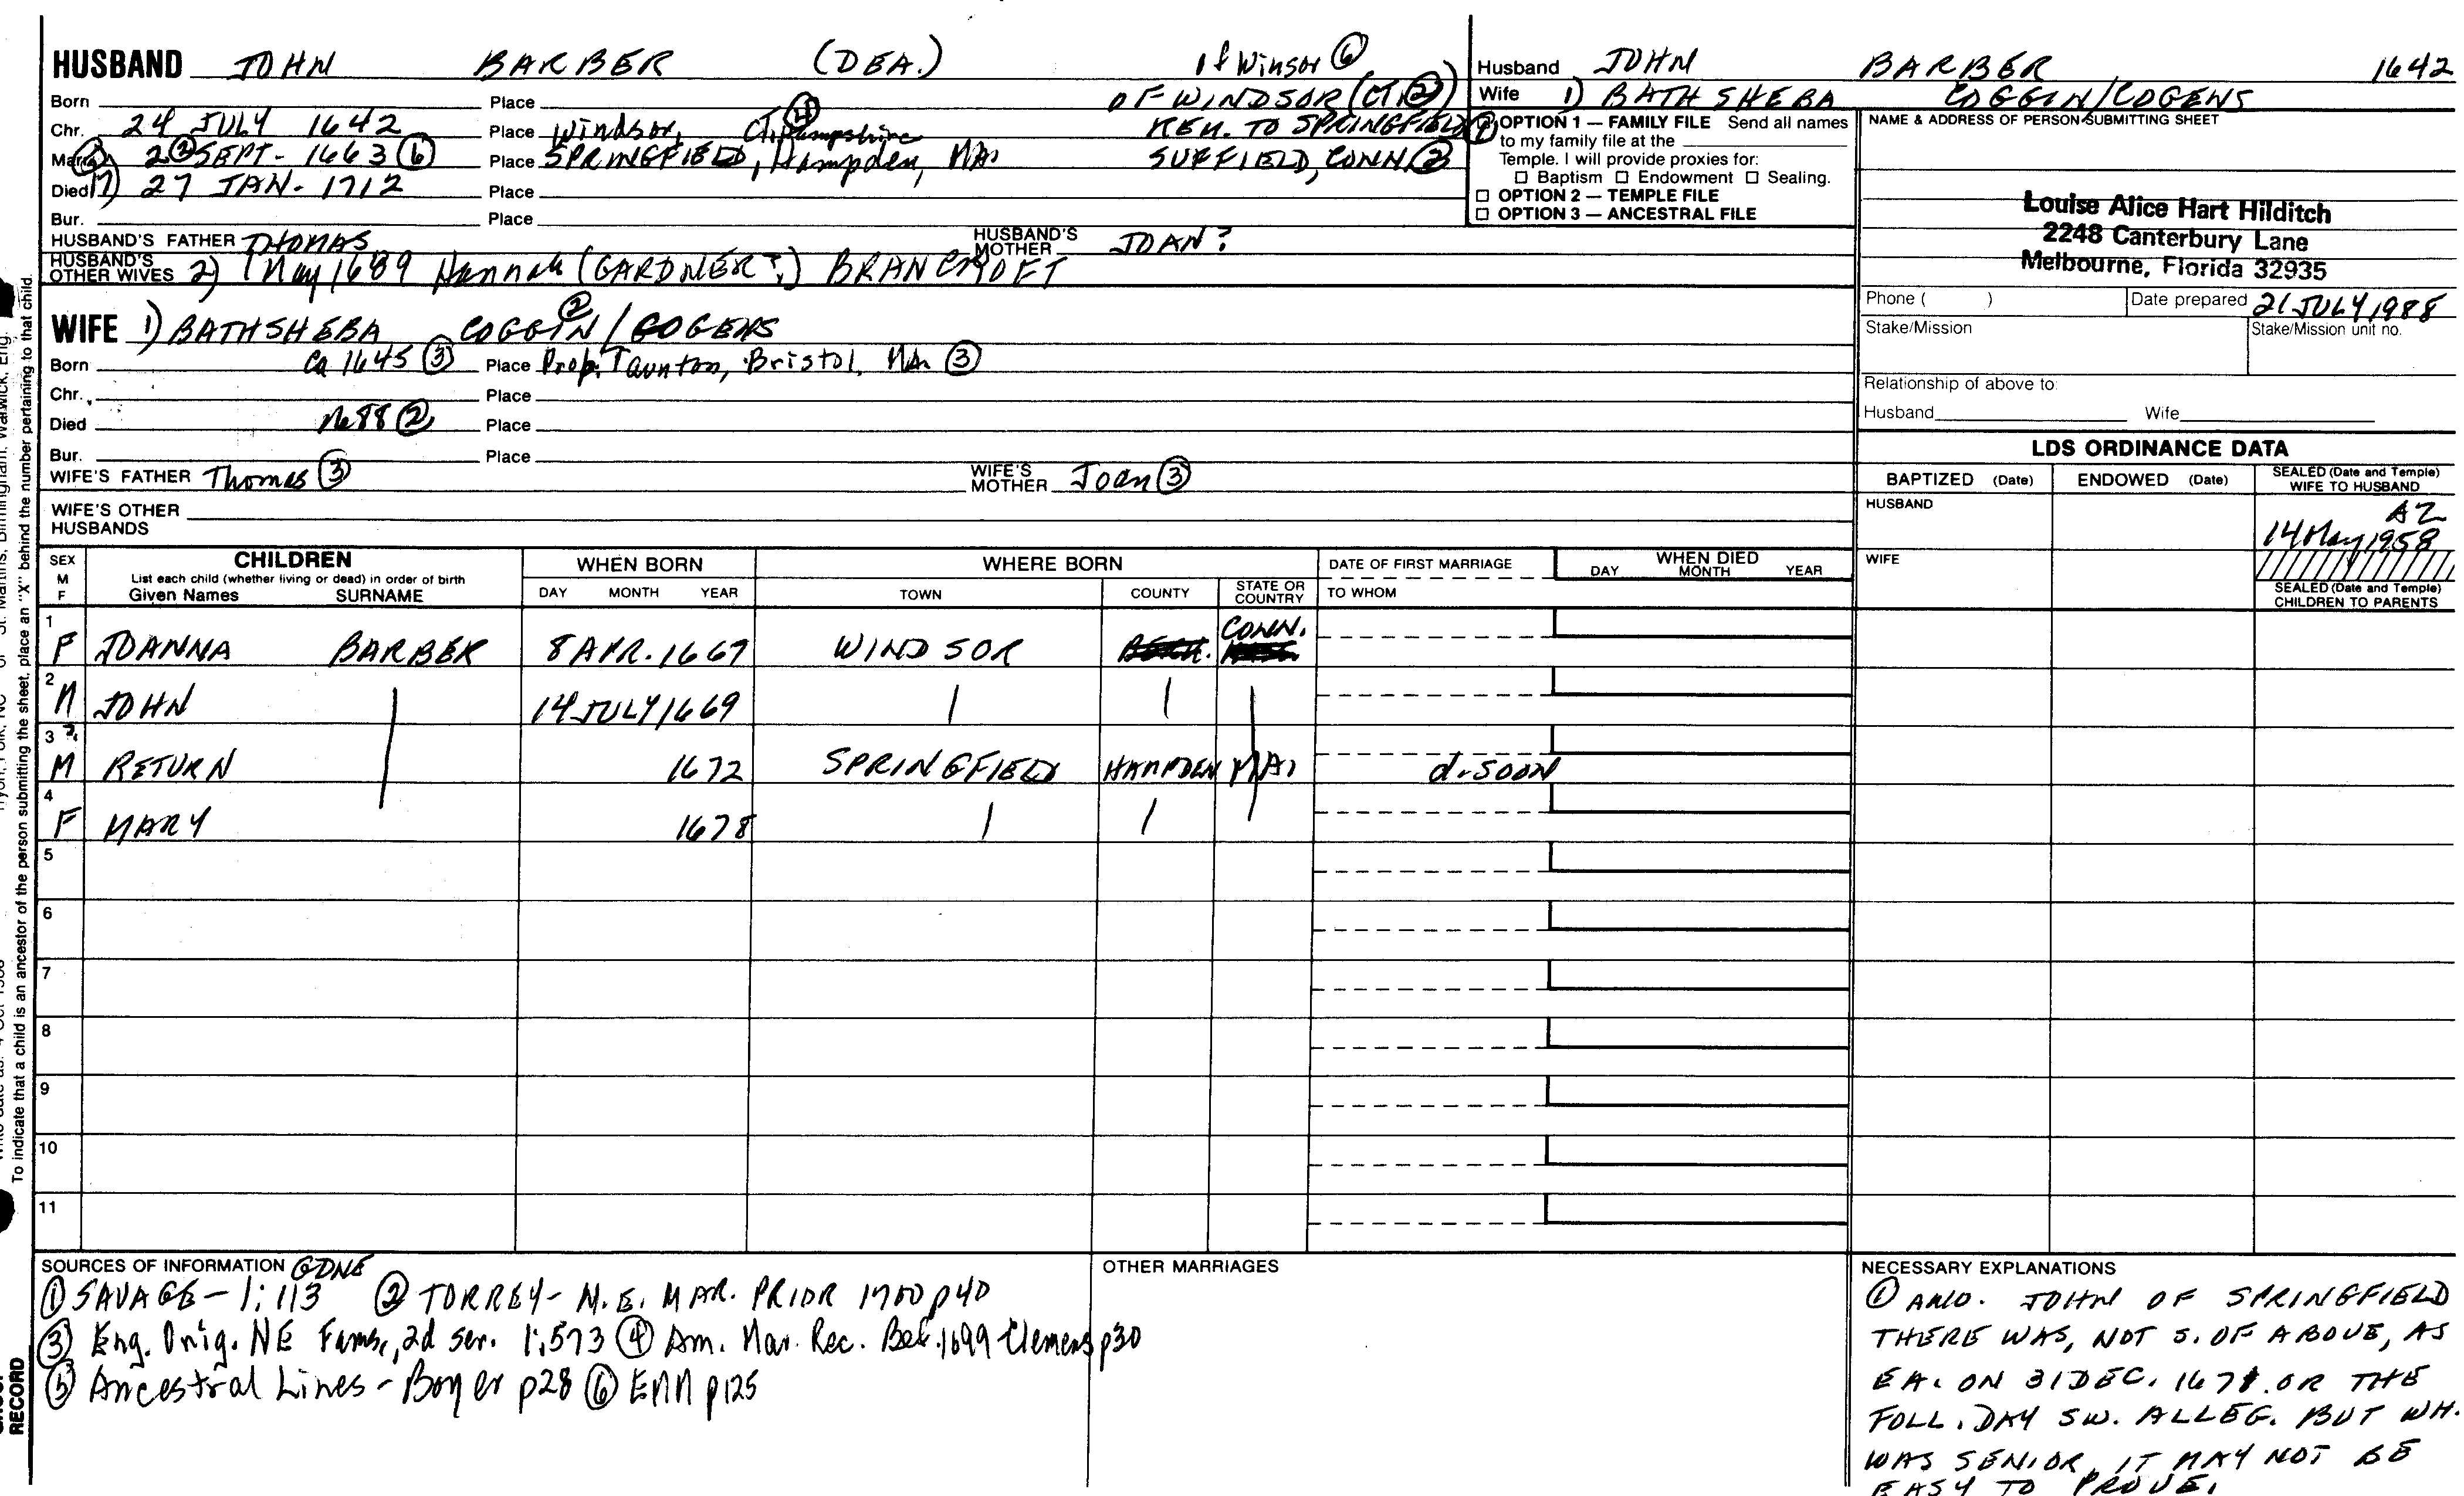 HUSBAND JOHN BARBER (DEA.) of Winsor ⑥
Born Place OF WINDSOR (CT.②)
Chr. 24 JULY 1642 Place Windsor, CT. Hampshire ④ REM. TO SPRINGFIELD
Marr. 2 ② SEPT- 1663 ⑥ Place SPRINGFIELD, Hampden, MA. SUFFIELD, CONN. ②
Died 27 JAN- 1712 Place
Bur. Place
HUSBAND'S FATHER THOMAS HUSBAND'S MOTHER JOAN?
HUSBAND'S OTHER WIVES 2) 1 May 1689 Hannah (GARDNER ?) BRANCROFT
WIFE 1) BATHSHEBA COGGIN ② / COGENS
Born Ca 1645 ③ Place Prob. Taunton, Bristol, MA ③
Chr. Place
Died 1688 ② Place
Bur. Place
WIFE'S FATHER Thomas ③ WIFE'S MOTHER Joan ③
WIFE'S OTHER
HUSBANDS
Husband JOHN BARBER 1642
Wife 1) BATHSHEBA COGGIN/COGENS
OPTION 1 — FAMILY FILE Send all names
to my family file at the
Temple. I will provide proxies for:
☐ Baptism ☐ Endowment ☐ Sealing.
☐ OPTION 2 — TEMPLE FILE
☐ OPTION 3 — ANCESTRAL FILE
NAME & ADDRESS OF PERSON SUBMITTING SHEET
Louise Alice Hart Hilditch
2248 Canterbury Lane
Melbourne, Florida 32935
Phone ( ) Date prepared 21 JULY 1988
Stake/Mission Stake/Mission unit no.
Relationship of above to:
Husband Wife
LDS ORDINANCE DATA
BAPTIZED (Date) ENDOWED (Date) SEALED (Date and Temple) WIFE TO HUSBAND
HUSBAND AZ
14 May 1958
WIFE
SEALED (Date and Temple)
CHILDREN TO PARENTS
SEX M F CHILDREN WHEN BORN WHERE BORN DATE OF FIRST MARRIAGE WHEN DIED
List each child (whether living or dead) in order of birth
Given Names SURNAME DAY MONTH YEAR TOWN COUNTY STATE OR COUNTRY TO WHOM DAY MONTH YEAR
1 F JOANNA BARBER 8 APR. 1667 WINDSOR CONN.
2 M JOHN | 14 JULY 1669 | | |
3 ?. M RETURN 1672 SPRINGFIELD HAMPDEN MA. d. soon
4 F MARY 1678 | |
5
6
7
8
9
10
11
SOURCES OF INFORMATION GDNE
① SAVAGE - 1:113 ② TORREY - N.E. MAR. PRIOR 1700 p40
③ Eng. Orig. NE Fams., 2d ser. 1:573 ④ Am. Mar. Rec. Bef. 1699 Clemens p30
⑤ Ancestral Lines - Boyer p28 ⑥ p125
OTHER MARRIAGES
NECESSARY EXPLANATIONS
① ANO. JOHN OF SPRINGFIELD
THERE WAS, NOT S. OF ABOVE, AS
EA. ON 31 DEC. 1678 OR THE
FOLL. DAY SW. ALLEG. BUT WH.
WAS SENIOR, IT MAY NOT BE
EASY TO PROVE.
To indicate that a child is an ancestor of the person submitting the sheet, place an "X" behind the number pertaining to that child.
RECORD